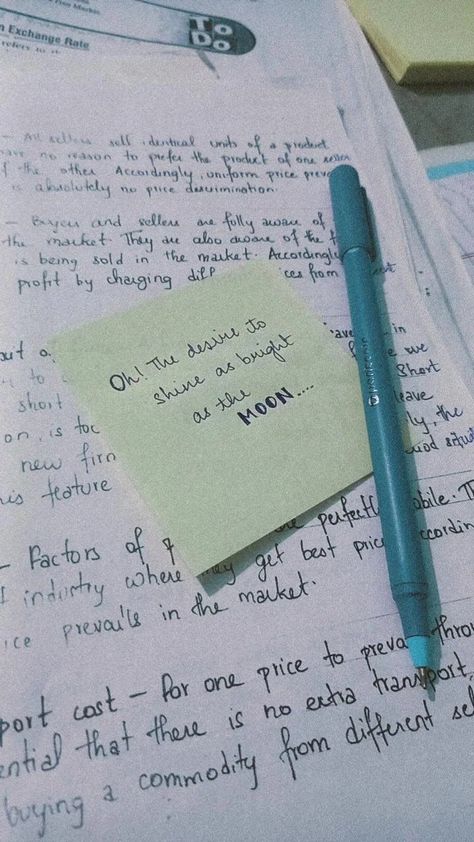 n Exchange Rate
refers to
TO
DO
- All sellers sell identical units of a product
have no reason to prefer the product of one seller
the other Accordingly, uniform price prev
is absolutely no price descrimination.
- Buyers and sellers are fully aware of
the market. They are also aware of the
is being sold in the market. Accordingly
profit by charging diff ces from
Oh! The desire to
shine as bright
as the
MOON....
out a
in
to
we
short
Short
on, is
leave
new firm
ly, the
is feature
- Factors of perfectly mobile. T
industry where they get best price accordin
ice prevails in the market.
port cost - for one price to preva throu
ential that there is no extra transport
buying a commodity from different se